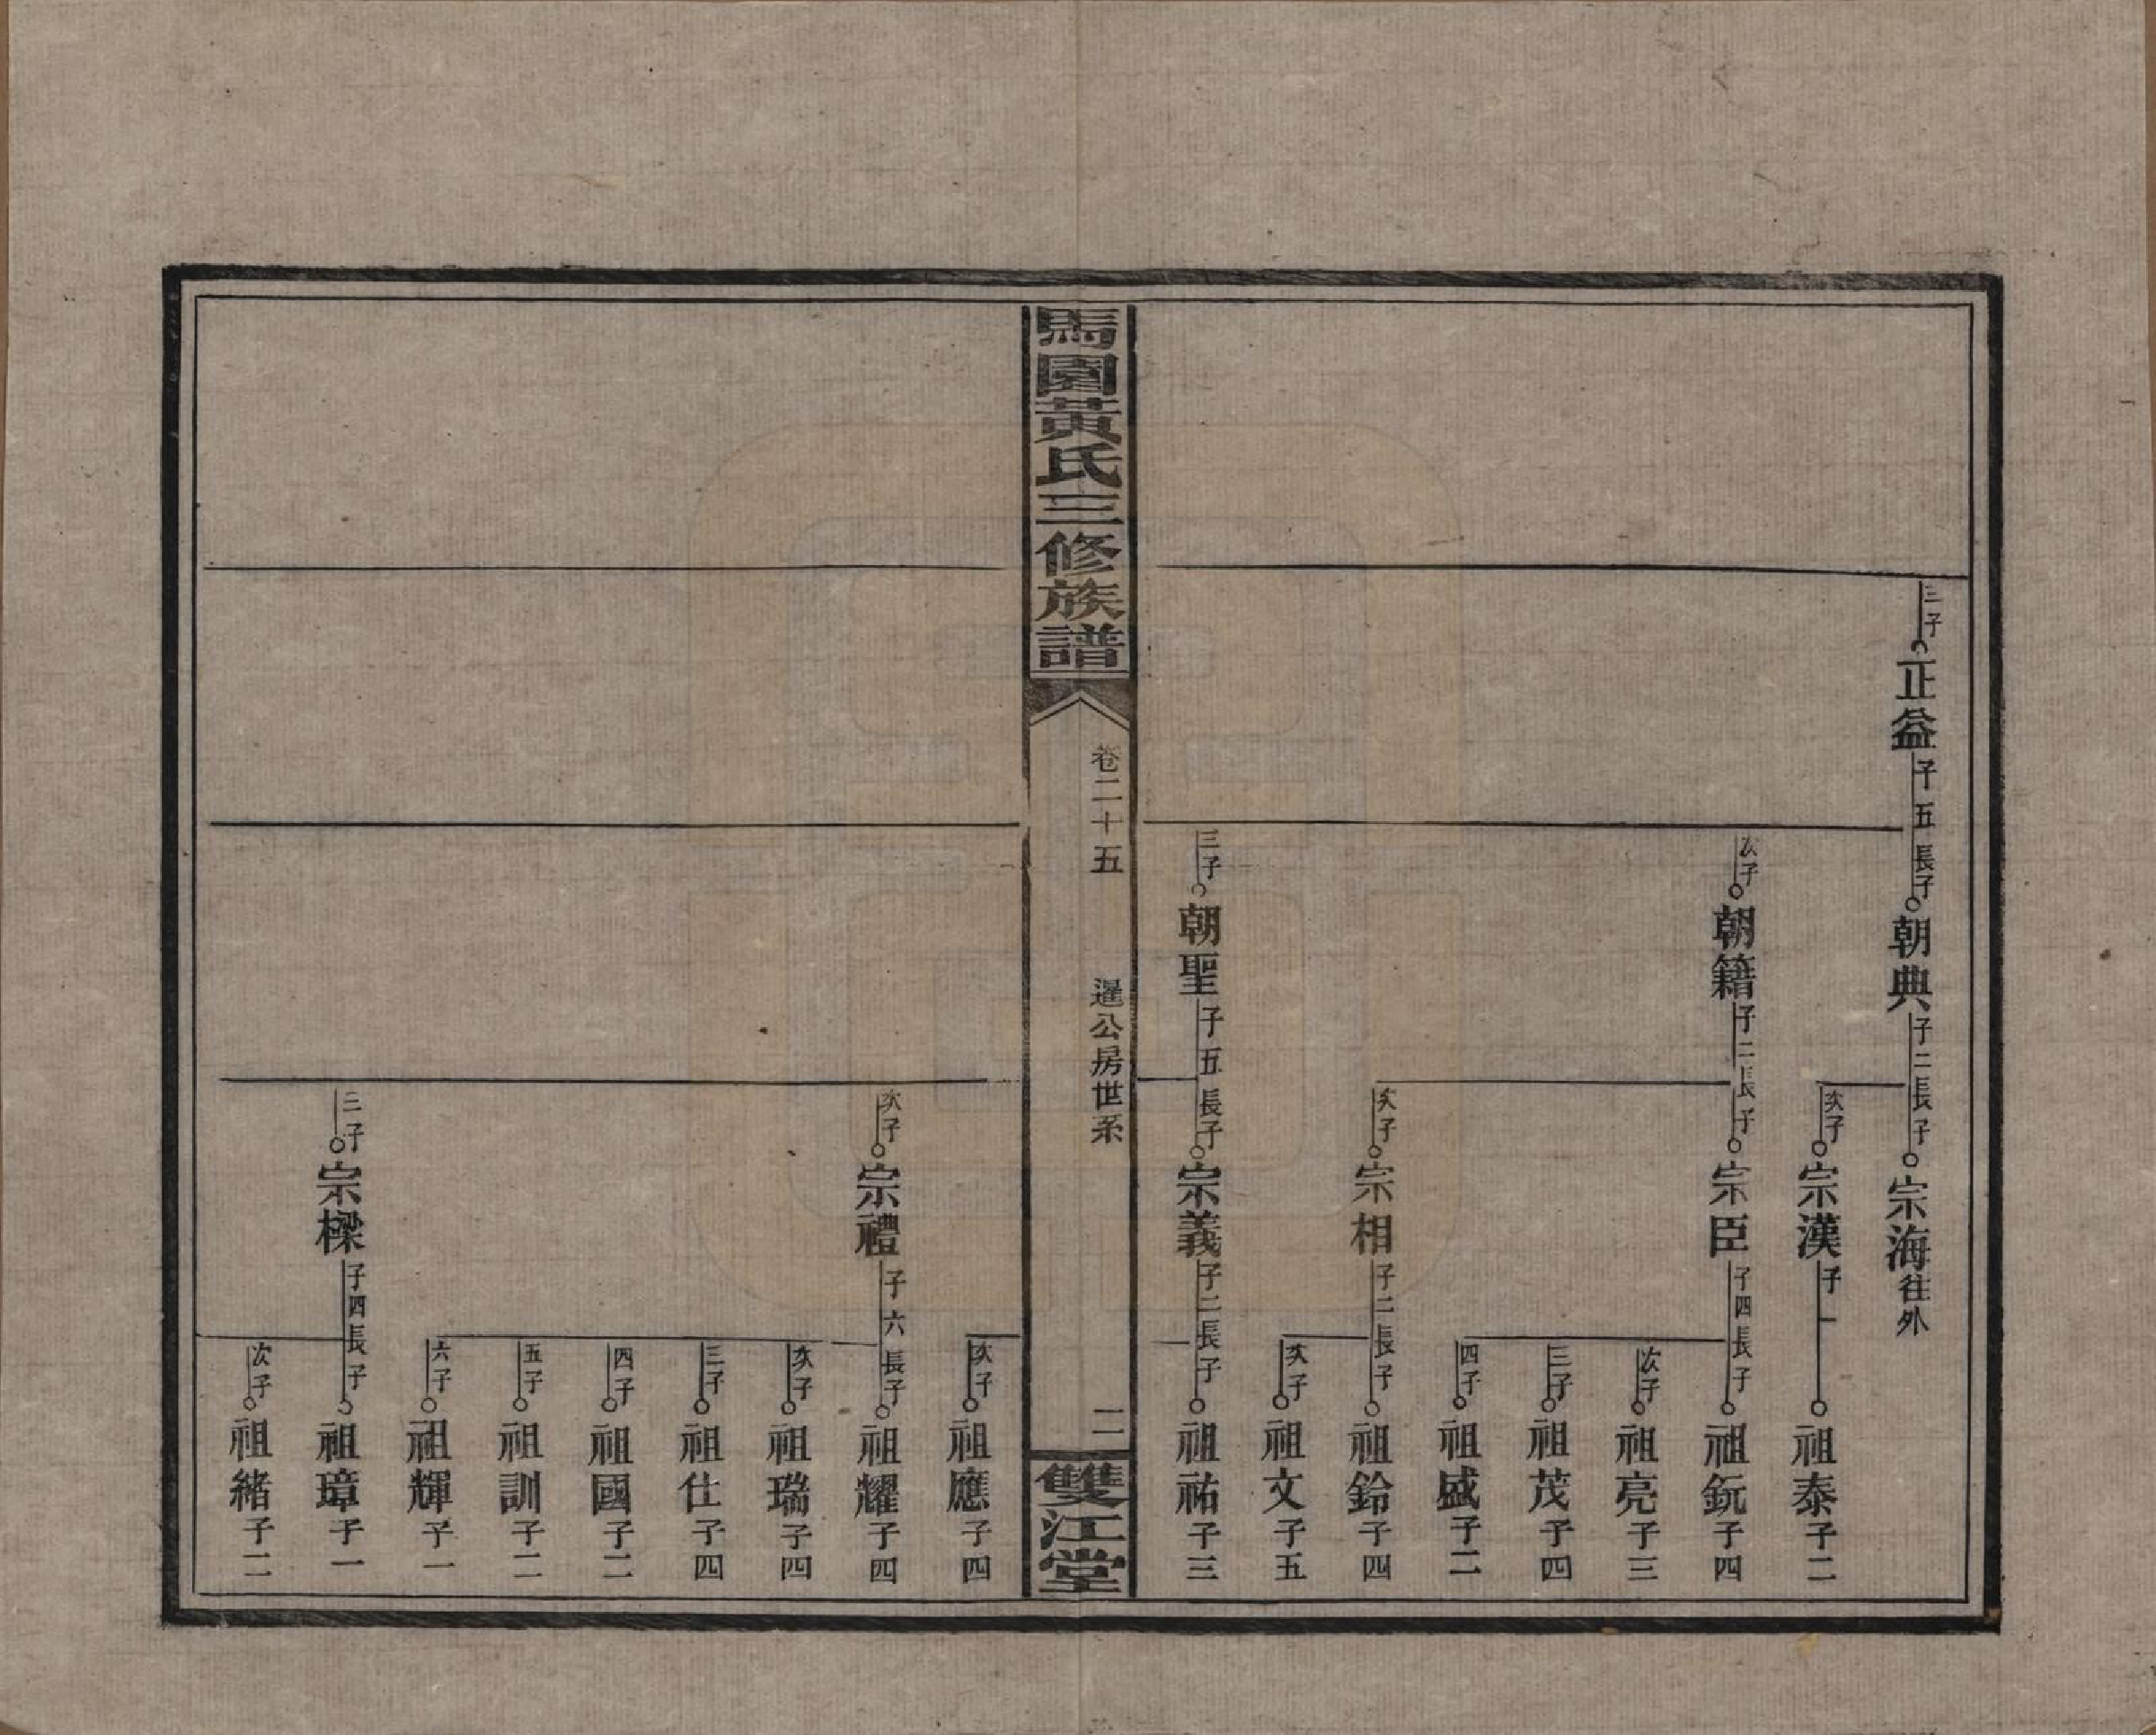 三子 正益 子五 長子 朝典 子二 長子 宗海 往外
次子 宗漢 子一 祖泰 子二
次子 朝籍 子二 長子 宗臣 子四 長子 祖鈨 子四
次子 祖亮 子三
三子 祖茂 子四
四子 祖盛 子二
次子 宗相 子二 長子 祖鈴 子四
次子 祖文 子五
三子 朝聖 子五 長子 宗義 子二 長子 祖祐 子三
馬園黃氏三修族譜 卷二十五 暹公房世系 二 雙江堂
次子 祖應 子四
次子 宗禮 子六 長子 祖耀 子四
次子 祖瑞 子四
三子 祖仕 子四
四子 祖國 子二
五子 祖訓 子二
六子 祖輝 子一
三子 宗樑 子四 長子 祖璋 子一
次子 祖緒 子二